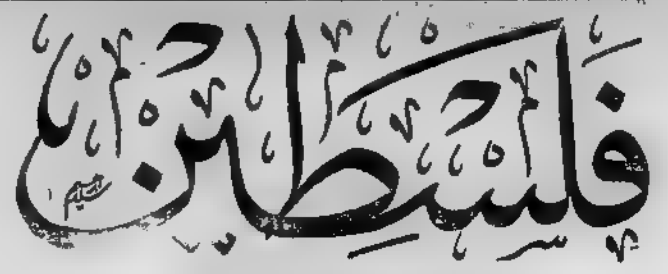 فَلَسْطِين